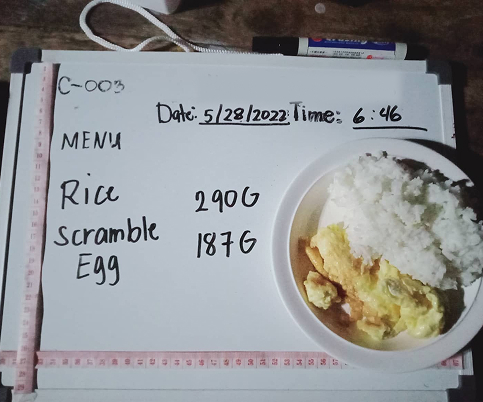 C-003
Date: 5/28/2022 Time: 6:46
MENU
Rice 290G
Scramble 187G
Egg